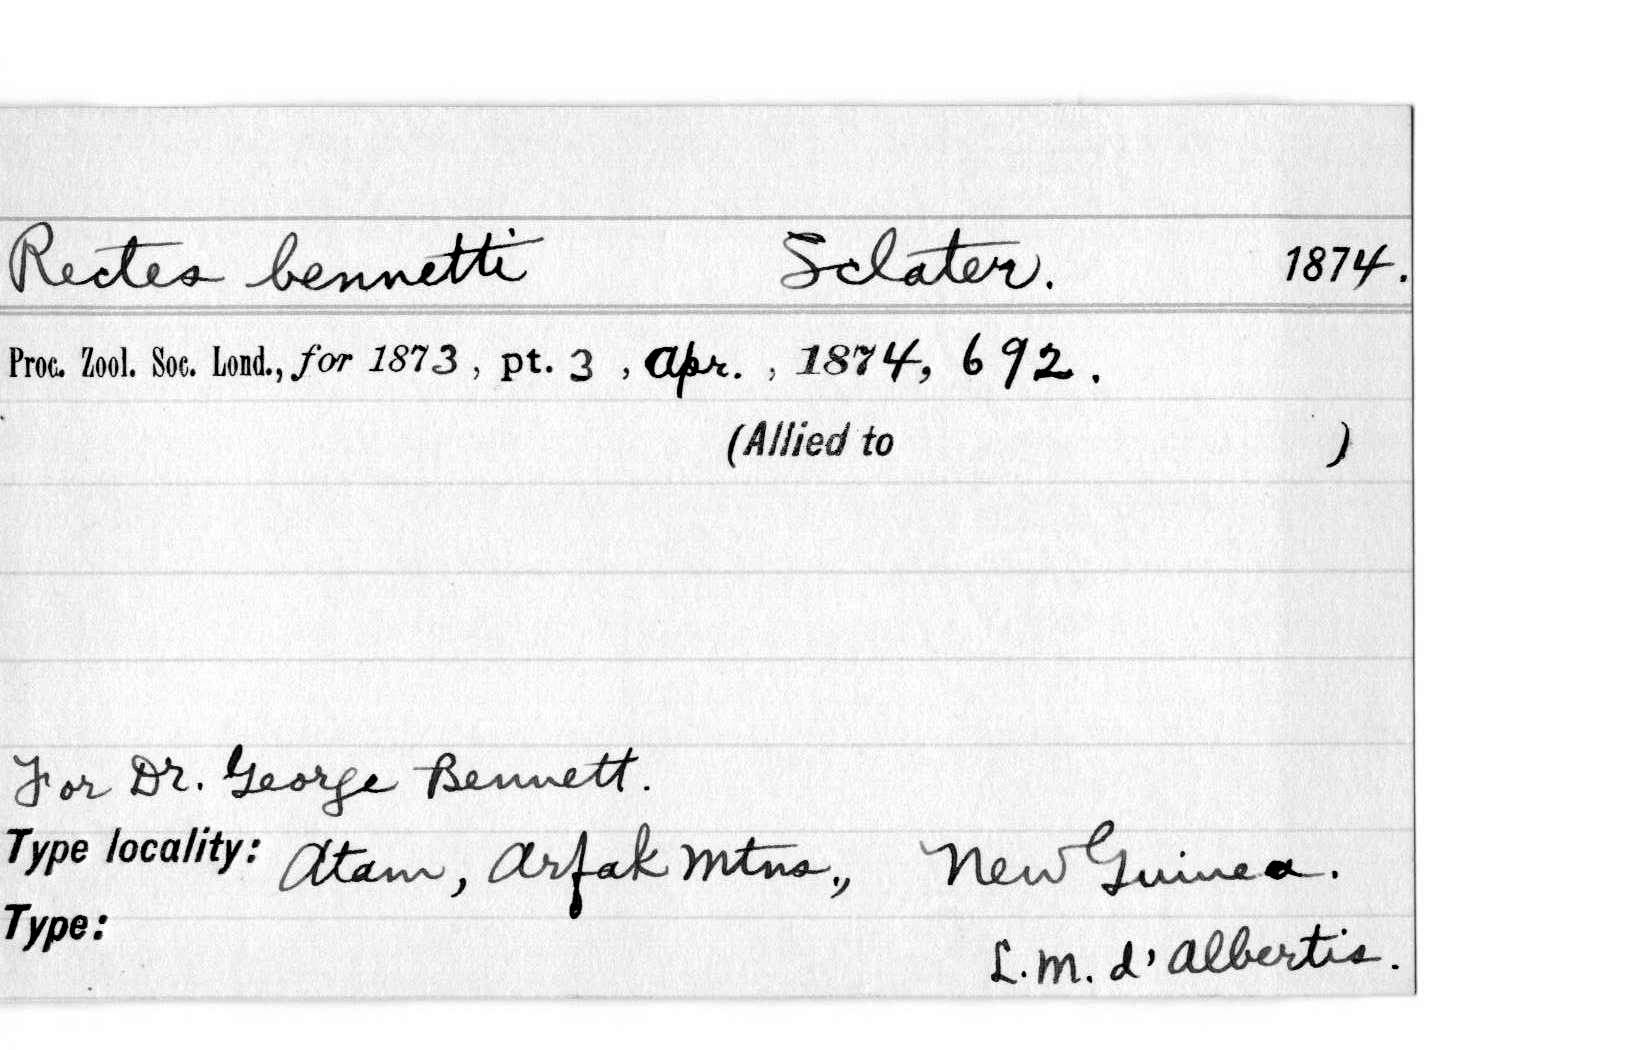 Rectes bennetti Sclater. 1874.
Proc. Zool. Soc. Lond., for 1873, pt. 3, Apr., 1874, 692.
(Allied to )
For Dr. George Bennett.
Type locality: Atam, Arfak Mtns., New Guinea.
Type:
L. M. d'Albertis.